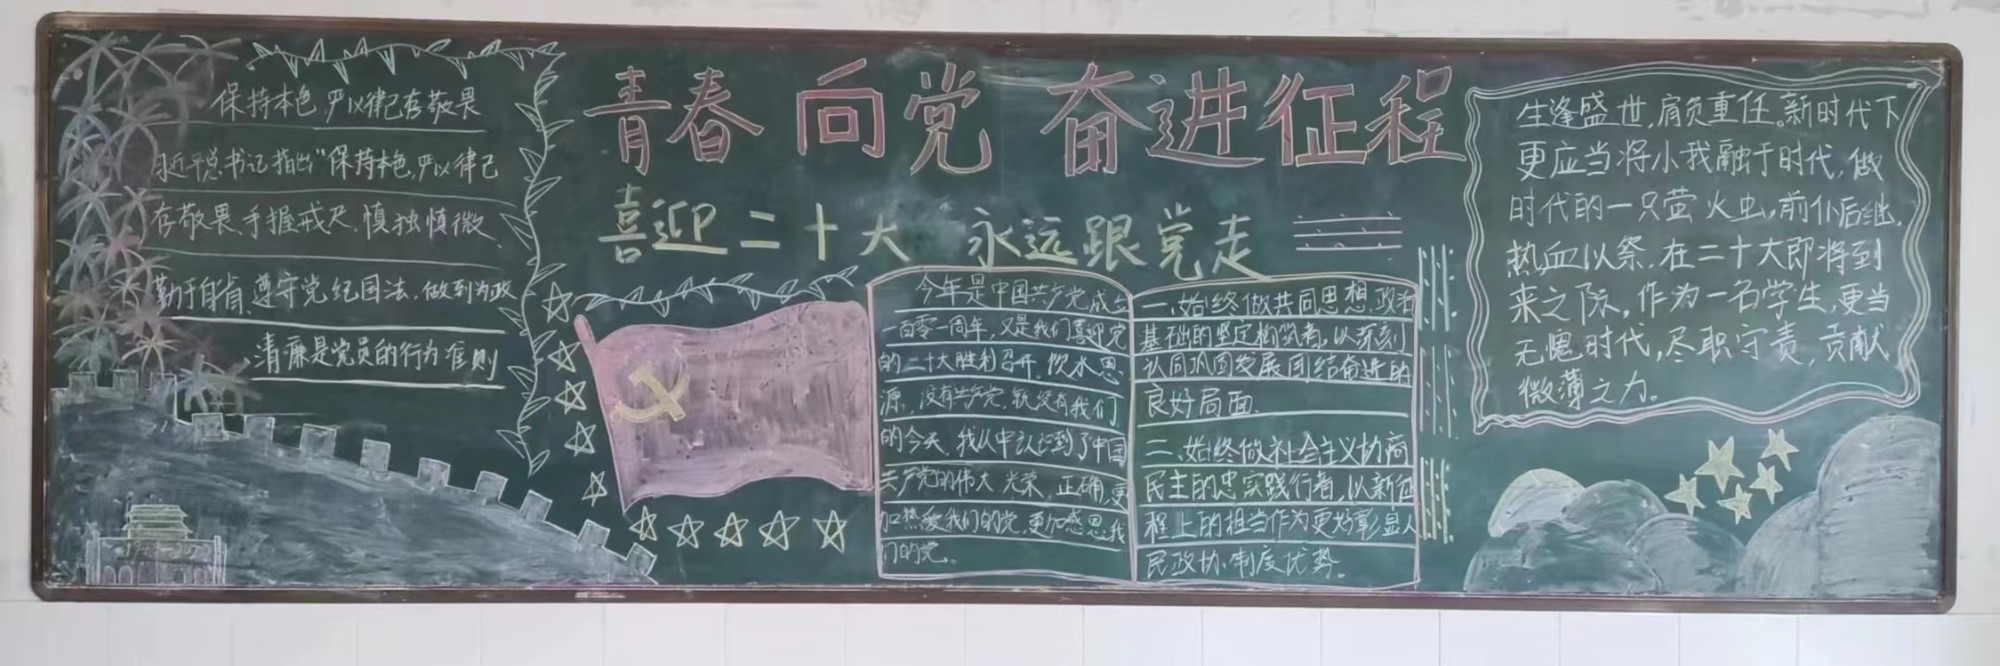 保持本色 严以律己存敬畏
习近平总书记指出“保持本色,严以律己
存敬畏、手握戒尺、慎独慎微、
勤于自省、遵守党纪国法,做到为政
清廉是党员的行为准则
青春向党 奋进征程
喜迎二十大 永远跟党走
今年是中国共产党成立
一百零一周年,又是我们喜迎党
的二十大胜利召开,饮水思
源,没有共产党,就没有我们
的今天,我从中认识到了中国
共产党的伟大、光荣、正确,更
加热爱我们的党,更加感恩我
们的党。
一、始终做共同思想政治
基础的坚定构筑者,以深刻
认同巩固发展团结奋进的
良好局面.
二、始终做社会主义协商
民主的忠实践行者,以新征
程上的担当作为更好彰显人
民政协制度优势。
生逢盛世,肩负重任。新时代下
更应当将小我融于时代,做
时代的一只萤火虫,前仆后继,
热血以祭.在二十大即将到
来之际,作为一名学生,更当
无愧时代,尽职守责,贡献
微薄之力。